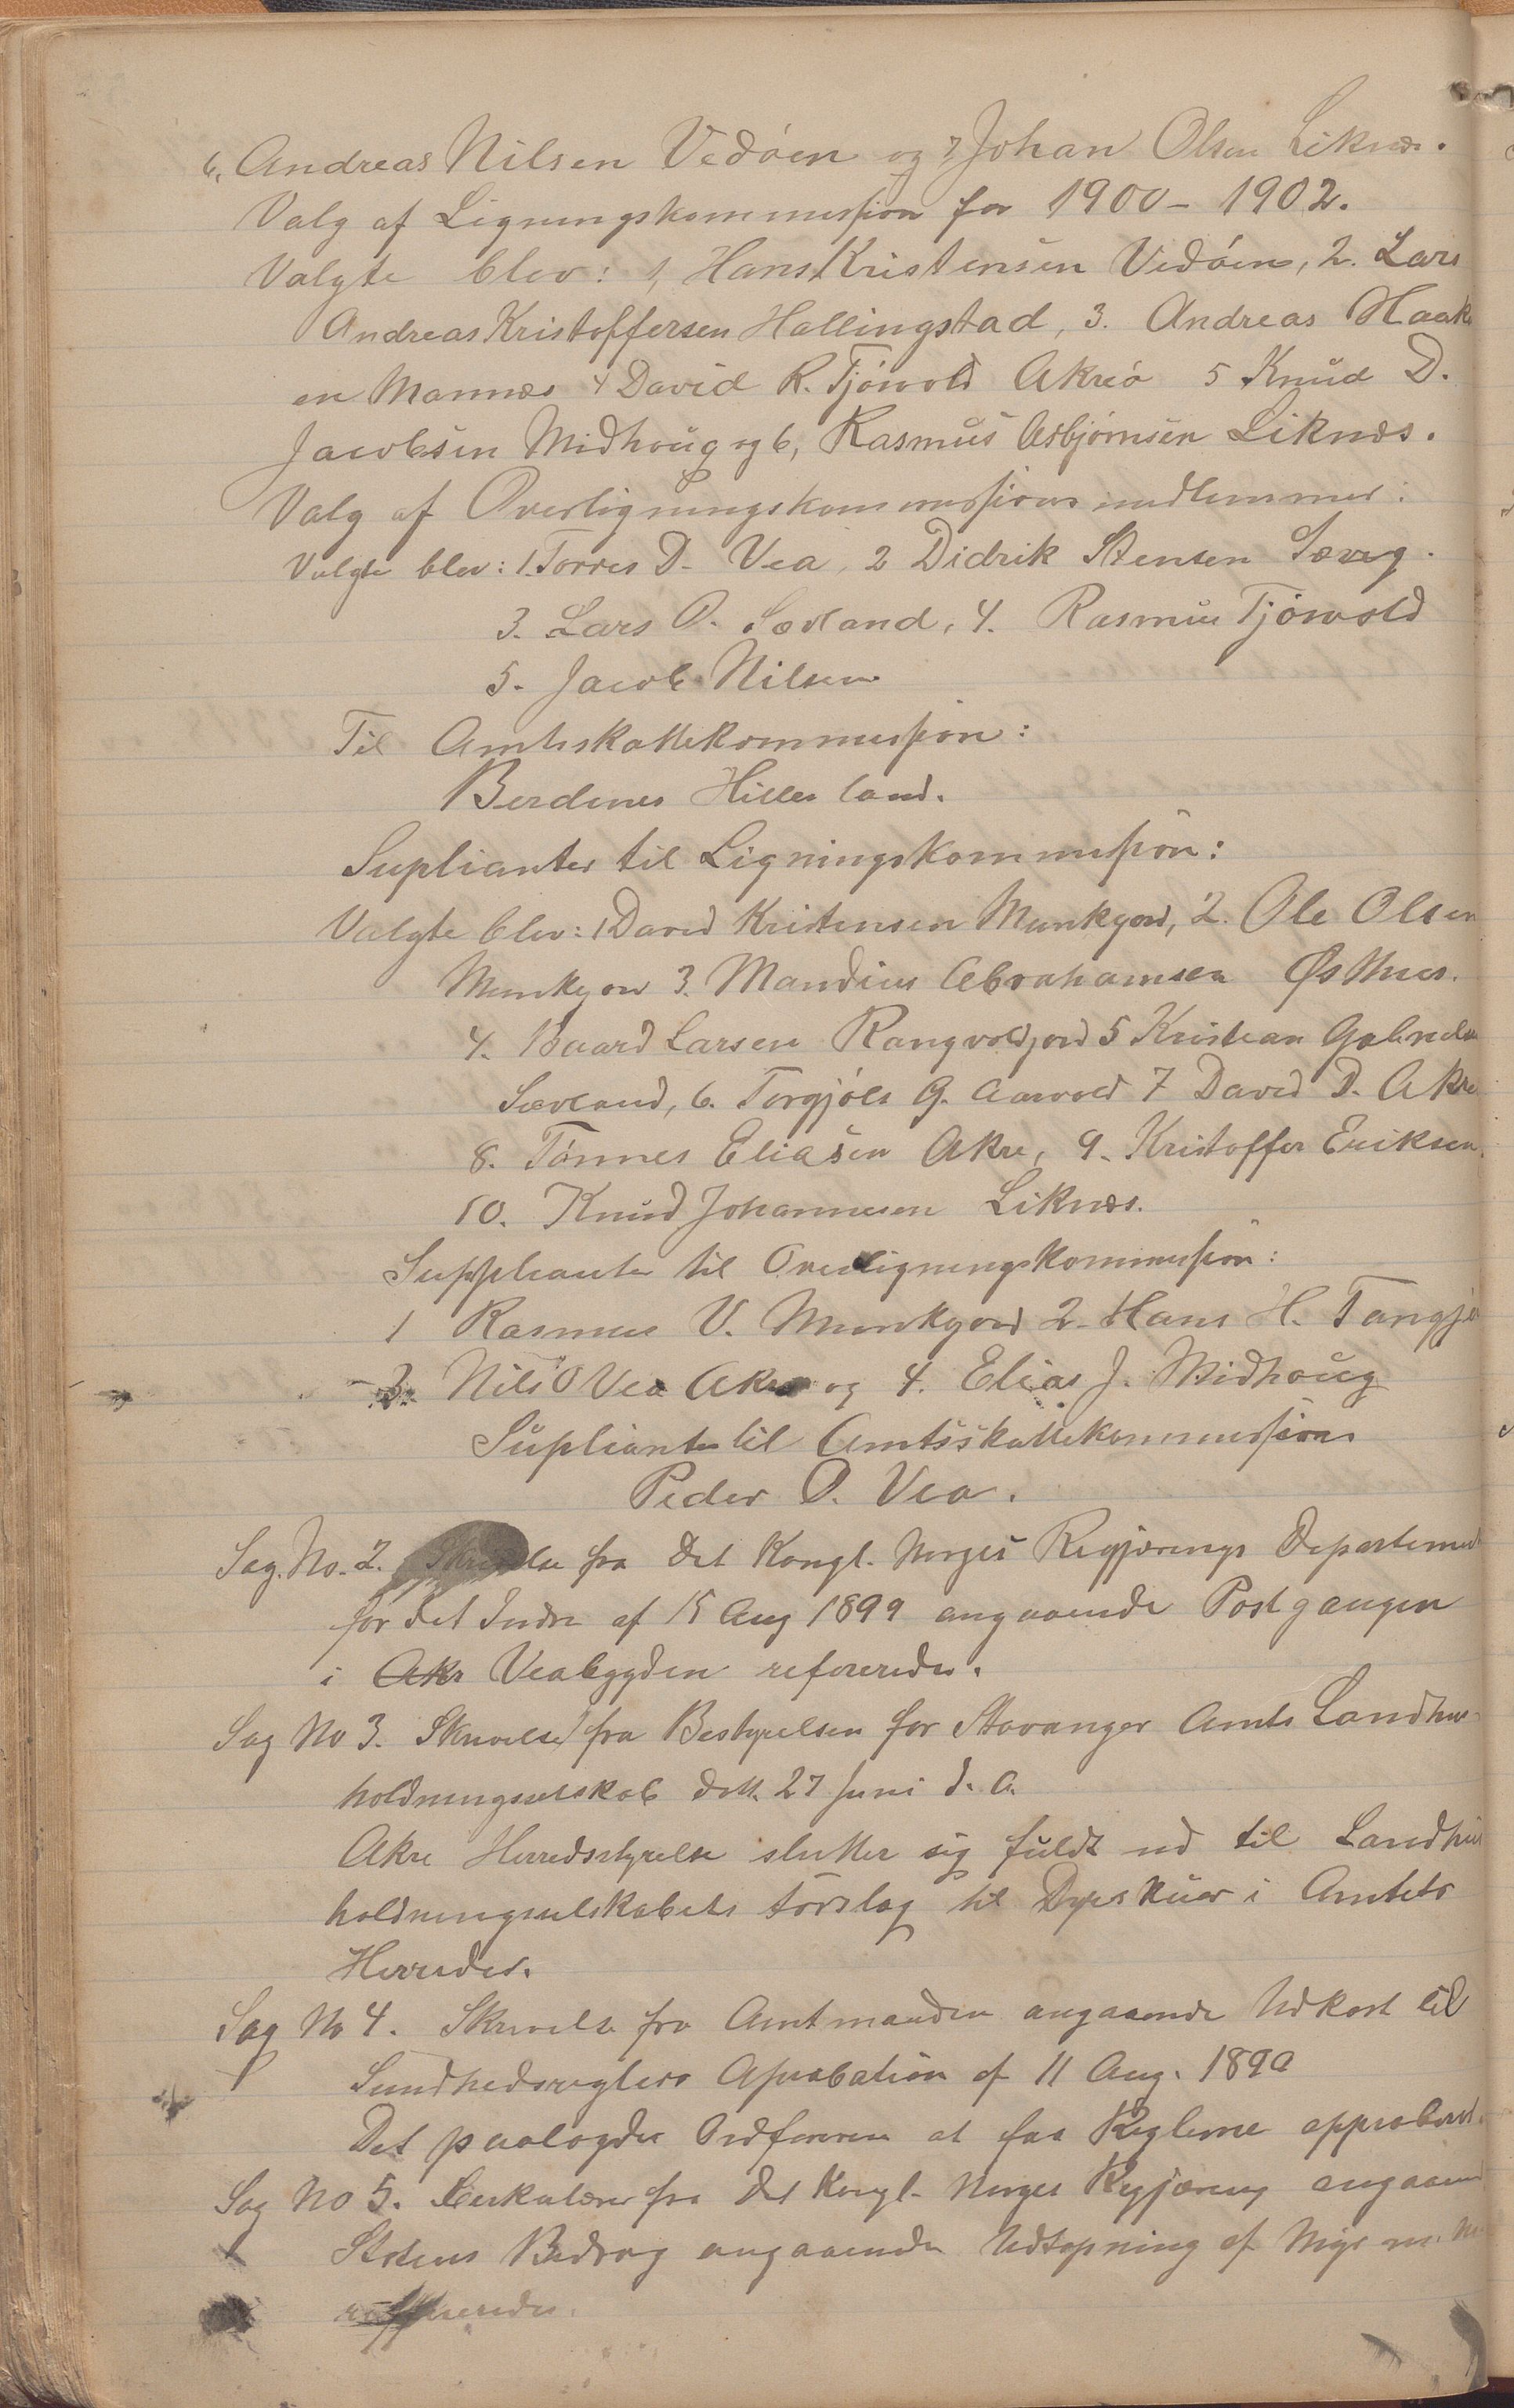 6, Andreas Nilsen Vedöen og 7 Johan Olsen Liknæs.
Valg af Ligningskommission for 1900 - 1902.
Valgte blev: 1, Hans Kristensen Vedöen, 2. Lars
Andreas Kristoffersen Hallingstad, 3. Andreas Haak
en Mannes 4 David R. Tjöwold Akreö 5 Knud D.
Jacobsen Midhoug og 6, Rasmus Asbjörnsen Liknæs.
Valg af Overligningskommissions medlemmer:
Valgte blev: 1. Torres D. Vea, 2 Didrik Stensen Sævig.
3. Lars O. Sævland, 4. Rasmus Tjöwold
5. Jacob Nilsen
Til Amtsskattekommission:
Berdines Hilles land.
Suplianter til Ligningskommission:
Valgte blev: 1 David Kristensen Munkejord, 2. Ole Olsen
Munkejord 3. Mandius Abrahamsen Østhus.
4. Baard Larsen Rangvoldjord 5 Kristian Gabrielsen
Sævland, 6. Torgjöls G. Aarvold 7 David D. Akre
8. Tönnes Eliasen Akre, 9. Kristoffer Eriksen,
10. Knud Johannesen Liknæs.
Supplianter til Overligningskommission:
1 Rasmus V. Munkejord 2. Hans H. Tangjer
3. Nils O Vea Akre og 4. Elias J. Midhoug
Supliant til Amtsskattekommission
Peder O. Vea.
Sag. No. 2. Skrivelse fra det Kongl. Norges Regjerings Departement
for det Indre af 15 Aug 1899 angaaende Postgangen
i Akr Veabygden refereredes.
Sag No 3. Skrivelse fra Bestyrelsen for Stavanger Amts Landhus-
holdningsselskab datt. 27 Juni d. A.
Akre Herredsstyrelse slutter sig fuldt ud til Landhus
holdningsselskabets forslag til Dyrskuer i Amtets
Herreder.
Sag No 4. Skrivelse fra Amtmanden angaaende Udkast til
Sundhedsreglers Aprobation af 11 Aug. 1899
Det paalagdes Ordföreren at faa Reglerne approberet.
Sag No 5. Cirkulære fra det Kongl. Norges Regjering angaaende
Statens Bidrag angaaende Udtapning af Myr m. m.
refereredes.